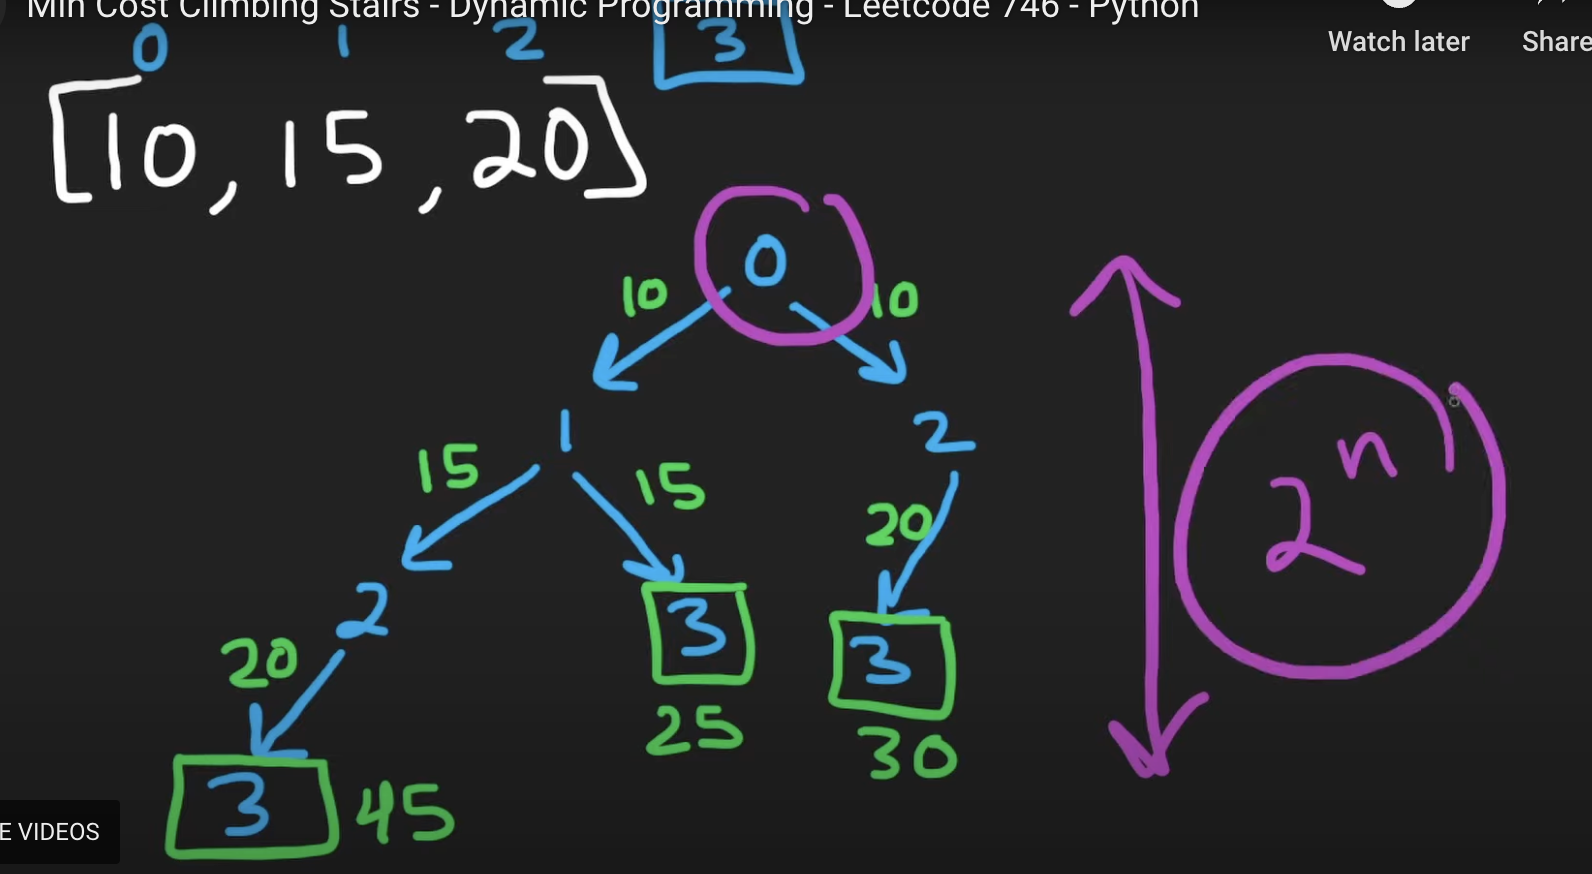 Min Cost Climbing Stairs - Dynamic Programming - Leetcode 746 - Python
Watch later
Share
0 1 2 3
[10, 15, 20]
0
10 10
1 2
15 15 20
2 3 3
20 25 30
3 45
2^n
E VIDEOS